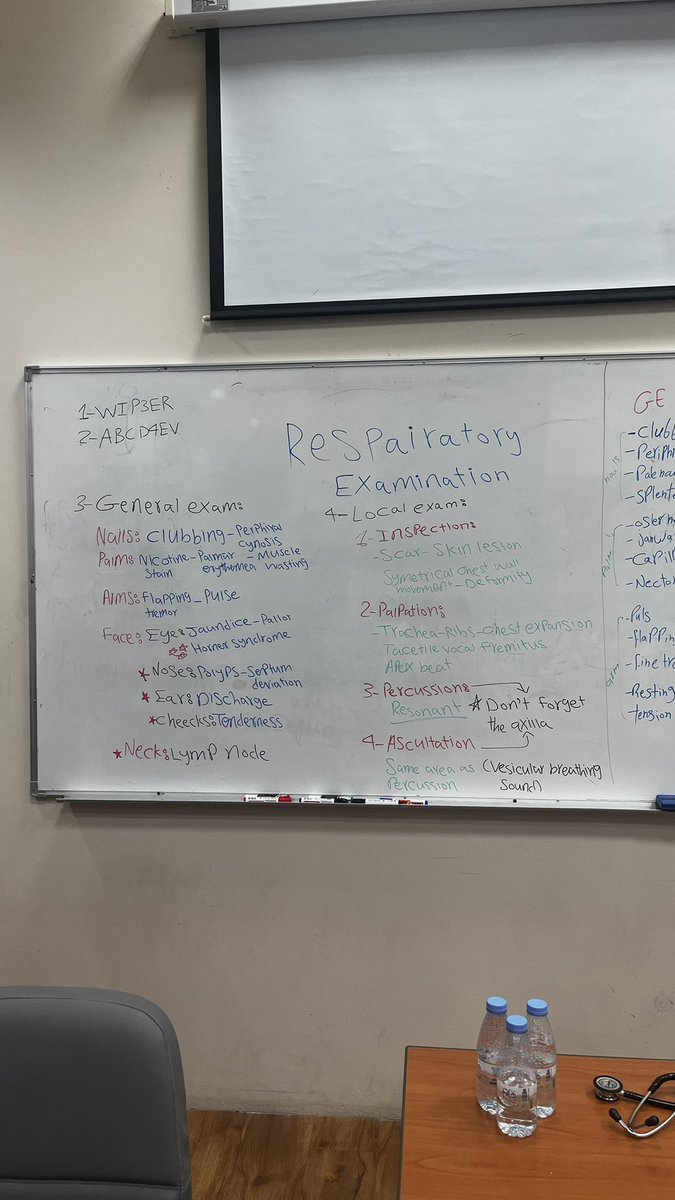 1-WIP3ER
2-ABCD4EV
ReSPairatory
EXamination
3-General exam:
Nails: Clubbing-Perphiral
cynosis
Palm: Nicotine-Palmar -Muscle
Stain erythemea wasting
Aims: Flapping_Pulse
tremor
Face: Eye: Jaundice-Pallor
Horner syndrome
*Nose: Polyps-Septum
deviation
*Ear: Discharge
*Cheecks: Tenderness
*Neck: LymP node
4-Local exam:
1-Inspection:
-Scar-Skin lesion
Symetrical chest wall
movement-Deformity
2-Palpation:
-Trachea-Ribs-chest expansion
Tacetile vocal Fremitus
APex beat
3-Percussion:
Resonant *Don't forget
the axilla
4-Ascultation
Same area as (Vesicular breathing
Percussion Sound)
GE
-Clubb
-Periphr
-Pale
-Splente
nails
-osler
-Janwa
-Capill
-Necto
Palm
-Puls
-Flappin
-Fine tre
-Resting
tension